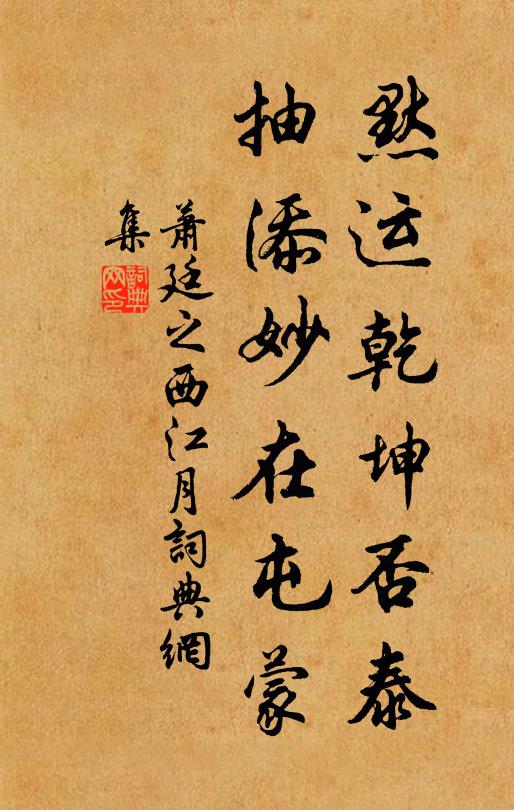 默运乾坤否泰
抽添妙在屯蒙
萧廷之西江月詞典網
集
詞典网印